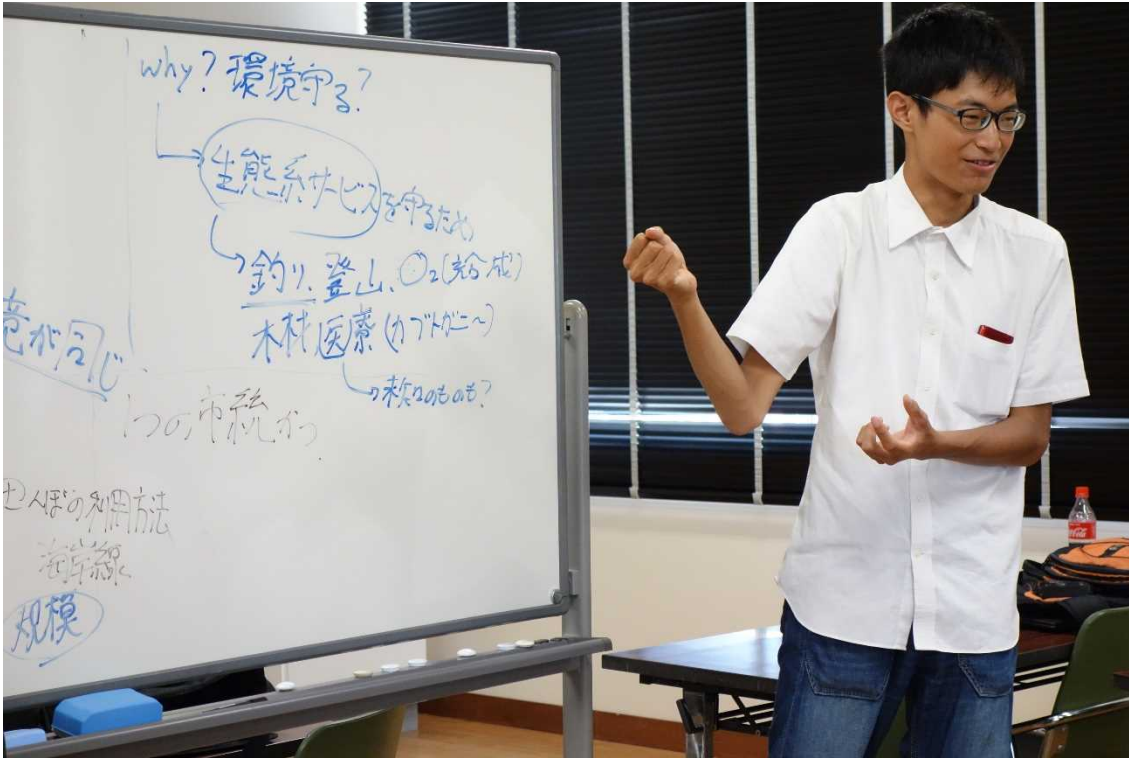 why? 環境守る?
生態系サービスを守るため
釣り、登山、O₂(光合成)
木材 医療(カブトガニ〜)
→未知のものも?
が同じ
1つの市統かつ
んぼの利用方法
海岸線
規模
Coca-Cola